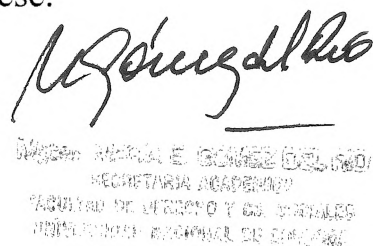 ese.
MGómezdelRío
MARÍA E. GOMEZ DEL RIO
SECRETARIA ACADEMICO
FACULTAD DE DERECHO Y CS. SOCIALES
UNIVERSIDAD NACIONAL DE